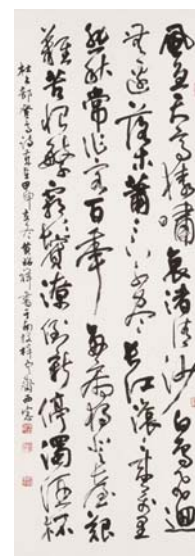 風急天高猿嘯哀渚清沙白鳥飛迴
無邊落木蕭〻下不盡長江滾〻來萬里
悲秋常作客百年多病獨登臺艱
難苦恨繁霜鬢潦倒新停濁酒杯
杜工部登高詩歲在甲申冬